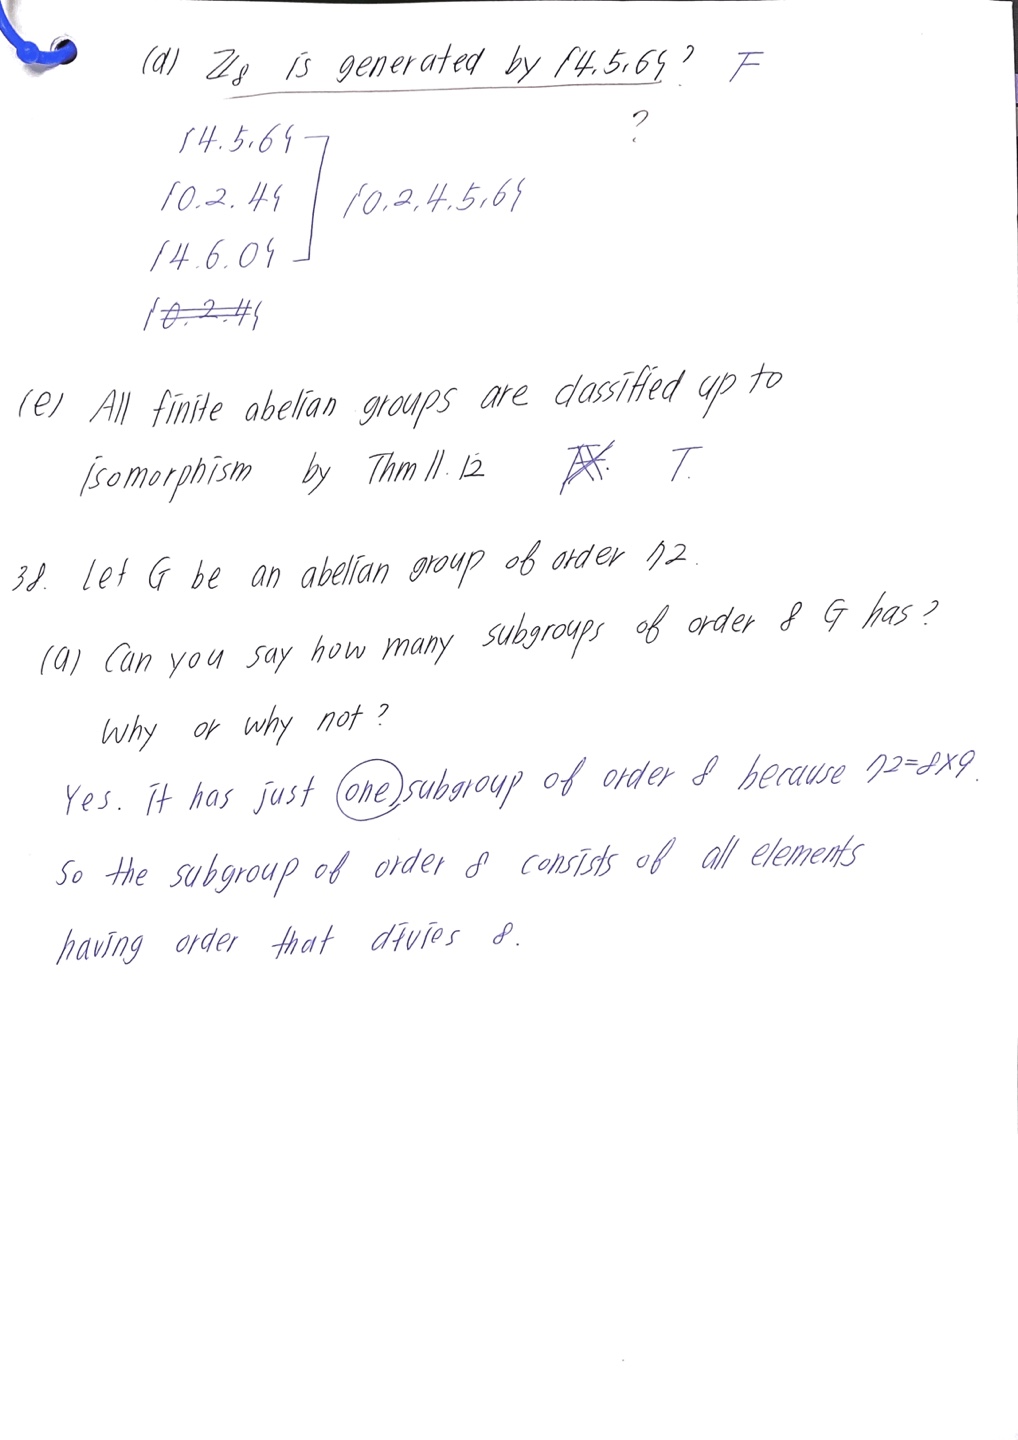 (d) ℤ8 is generated by {4.5.6}? F
?
{4.5.6}
{0.2.4}
{0.2.4.5.6}
{4.6.0}
{0.2.4}
(e) All finite abelian groups are classified up to
isomorphism by Thm 11.12 T.
38. Let G be an abelian group of order 72.
(a) Can you say how many subgroups of order 8 G has?
Why or why not?
Yes. it has just one subgroup of order 8 because 72=8×9.
So the subgroup of order 8 consists of all elements
having order that divies 8.